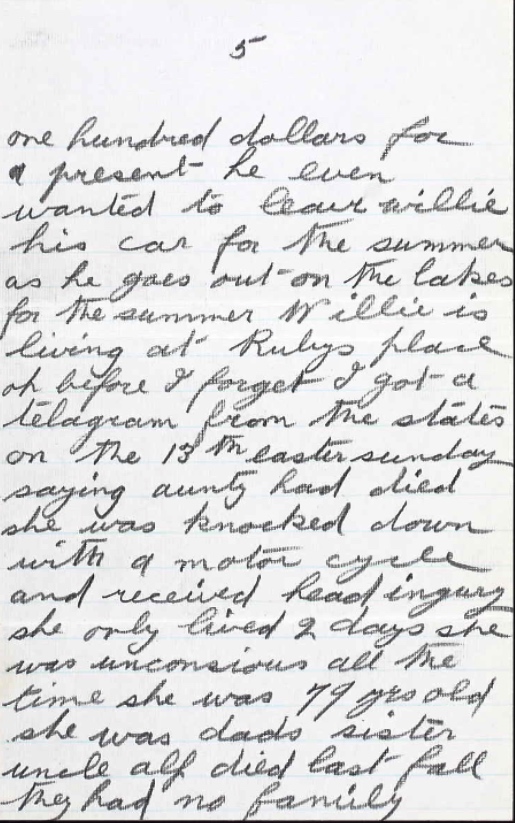 5
one hundred dollars for
a present he even
wanted to leave willie
his car for the summer
as he goes out on the lakes
for the summer Willie is
living at Rubys place
oh before I forget I got a
telagram from the states
on the 13th easter sunday
saying aunty had died
she was knocked down
with a motor cycle
and received head ingury
she only lived 2 days she
was unconsious all the
time she was 79 yrs old
she was dads sister
uncle alf died last fall
they had no family